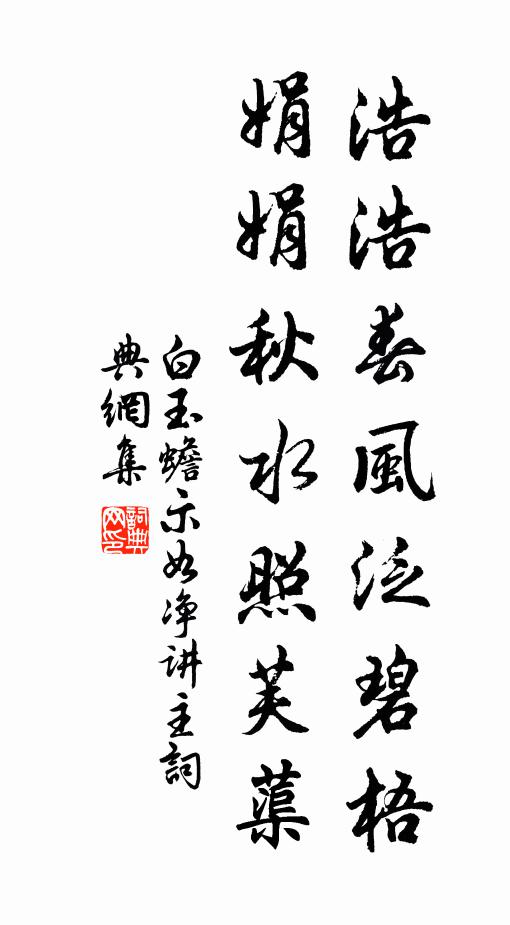 浩浩春風泛碧梧
娟娟秋水照芙蕖
白玉蟾示如净讲主詞
典網集
詞典网印